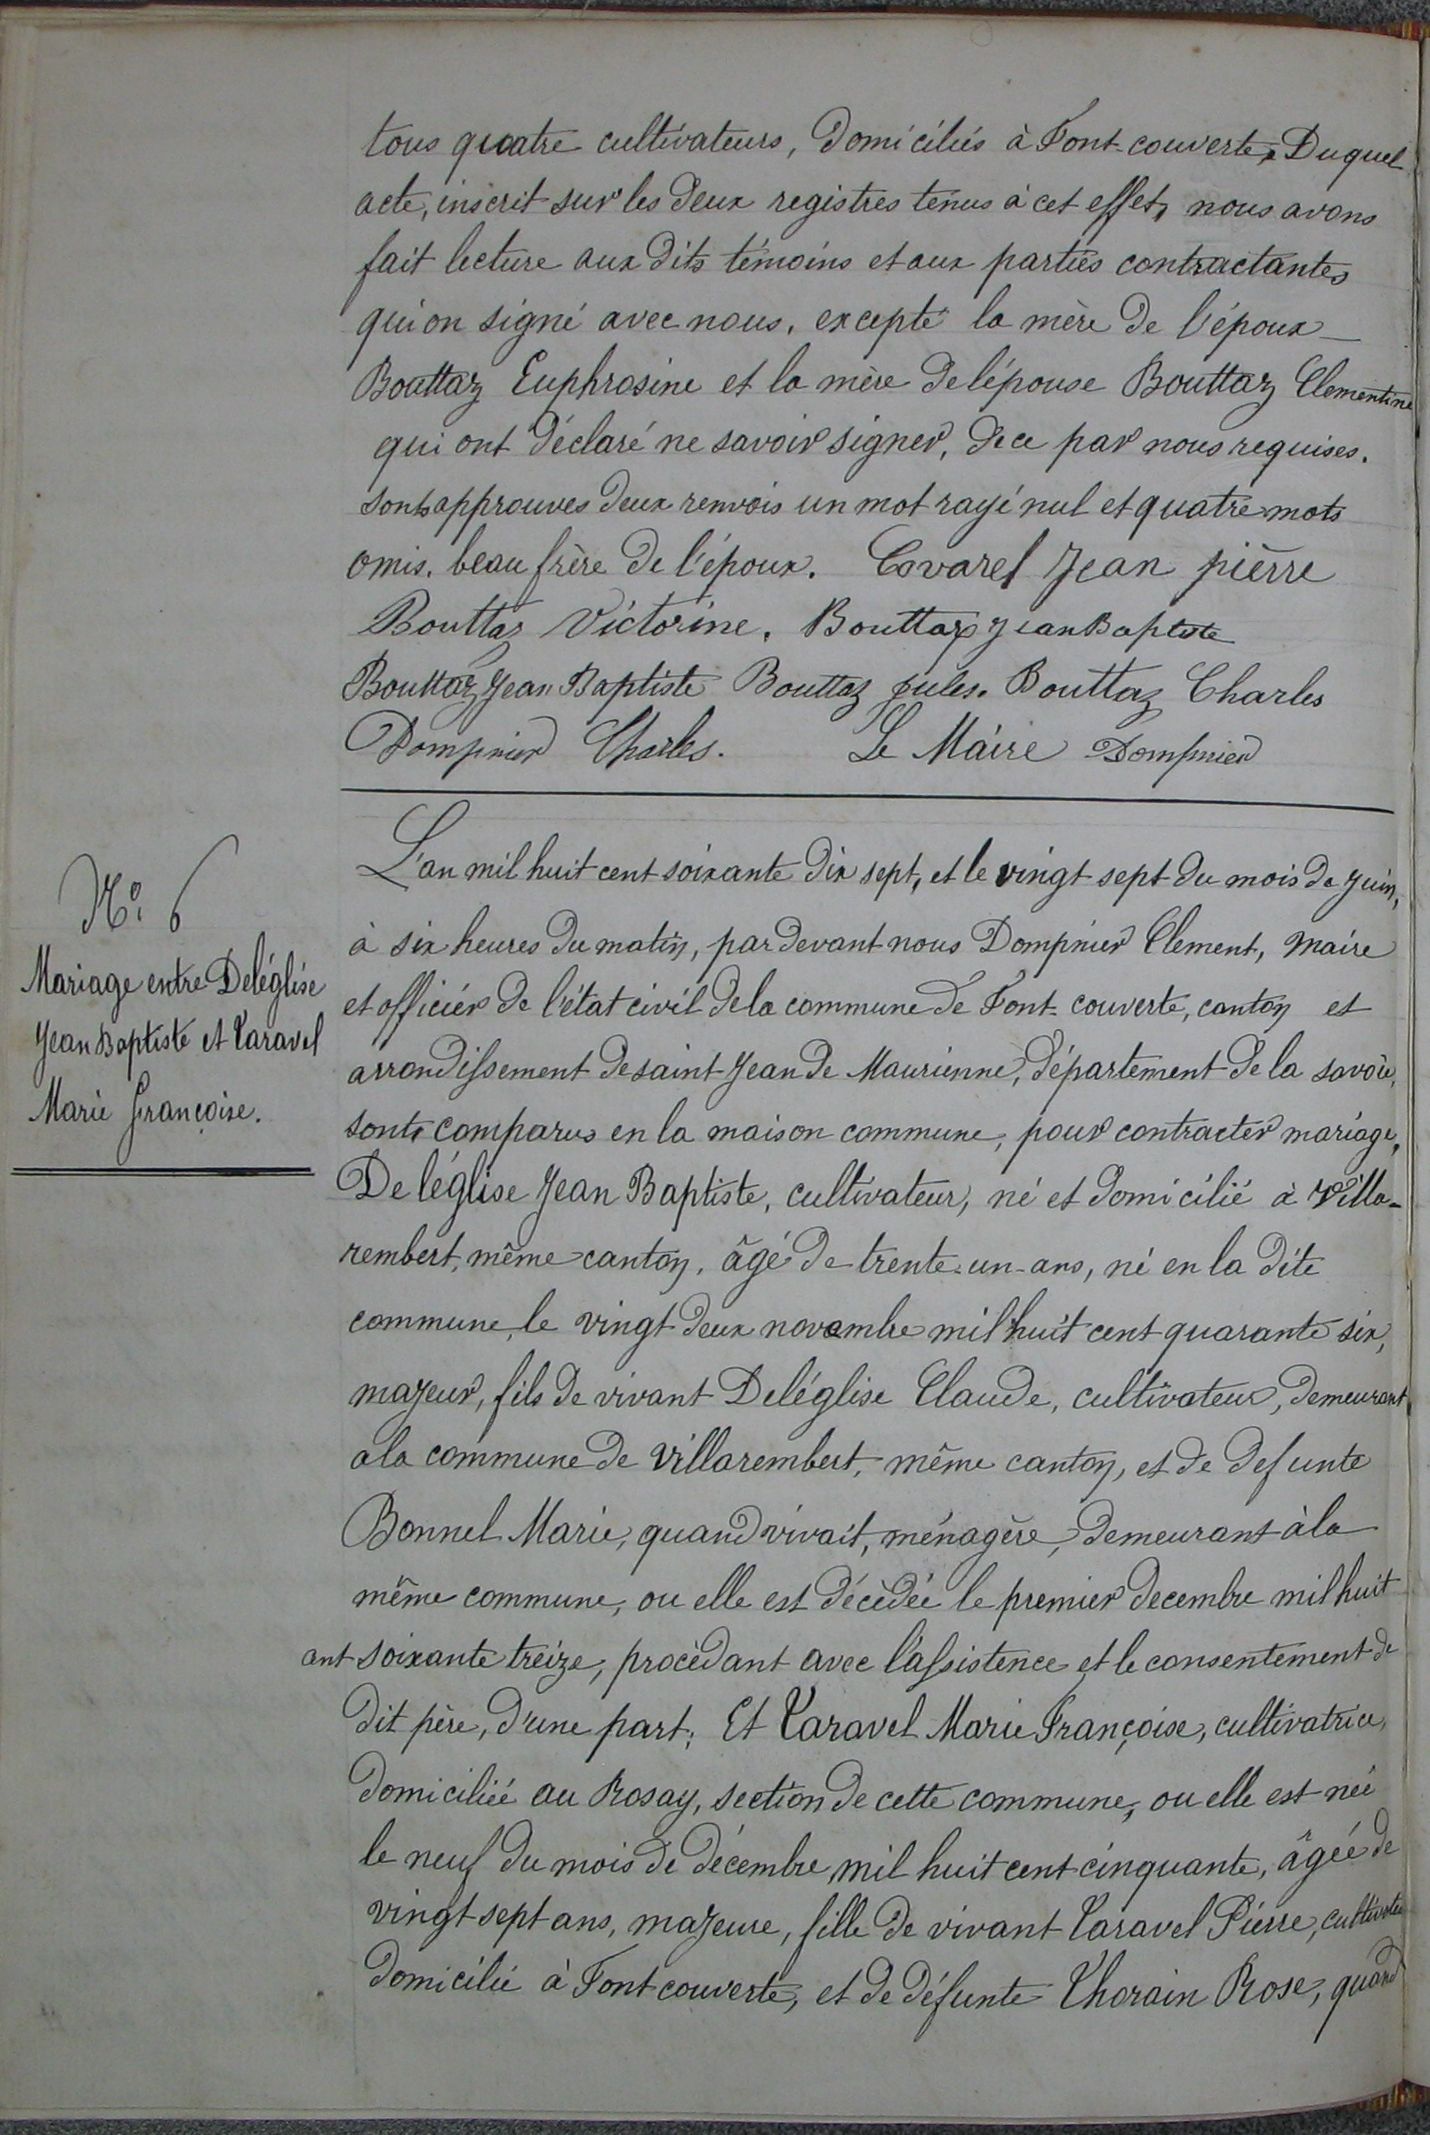 tous quatre cultivateurs, domiciliés à Font-couverte, Duquel
acte, inscrit sur les deux registres tenus à cet effet, nous avons
fait lecture aux dits témoins et aux parties contractantes
qui on signé avec nous, excepté la mère de l'époux
Bouttaz Euphrosine et la mère de l'épouse Bouttaz Clementine
qui ont déclaré ne savoir signer, de ce par nous requises.
sont approuves deux renvois un mot rayé nul et quatre mots
omis. beau frère de l'époux. Covarel Jean pièrre
Bouttaz Victorine. Bouttaz Jean Baptiste
Bouttaz Jean Baptiste Bouttaz jules. Bouttaz Charles
Dompnier Charles. Le Maire Dompnier
N.o 6
Mariage entre Deléglise
Jean Baptiste et Taravel
Marie Françoise.
L'an mil huit cent soixante dix sept, et le vingt sept du mois de Juin,
à six heures du matin, par devant nous Dompnier Clement, Maire
et officier de l'état civil de la commune de Font-couverte, canton et
arrondissement de saint Jean de Maurienne, département de la savoie,
sont comparus en la maison commune, pour contracter mariage,
Deléglise Jean Baptiste, cultivateur, né et domicilié à Villa-
rembert, même canton, âgé de trente-un-ans, né en la dite
commune, le vingt deux novembre mil huit cent quarante six,
majeur, fils de vivant Deléglise Claude, cultivateur, demeurant
a la commune de Villarembert, même canton, et de defunte
Bonnel Marie, quand vivait, ménagère, demeurant à la
même commune, ou elle est décèdée le premier decembre mil huit
cent soixante treize, procèdant avec l'assistence et le consentement de
dit père, d'une part; Et Taravel Marie Françoise, cultivatrice,
domiciliée au Rosay, section de cette commune, ou elle est née
le neuf du mois de décembre mil huit cent cinquante, âgée de
vingt sept ans, majeure, fille de vivant Taravel Pierre, cultivateur
domicilié à Font couverte, et de défunte Thorain Rose, quand